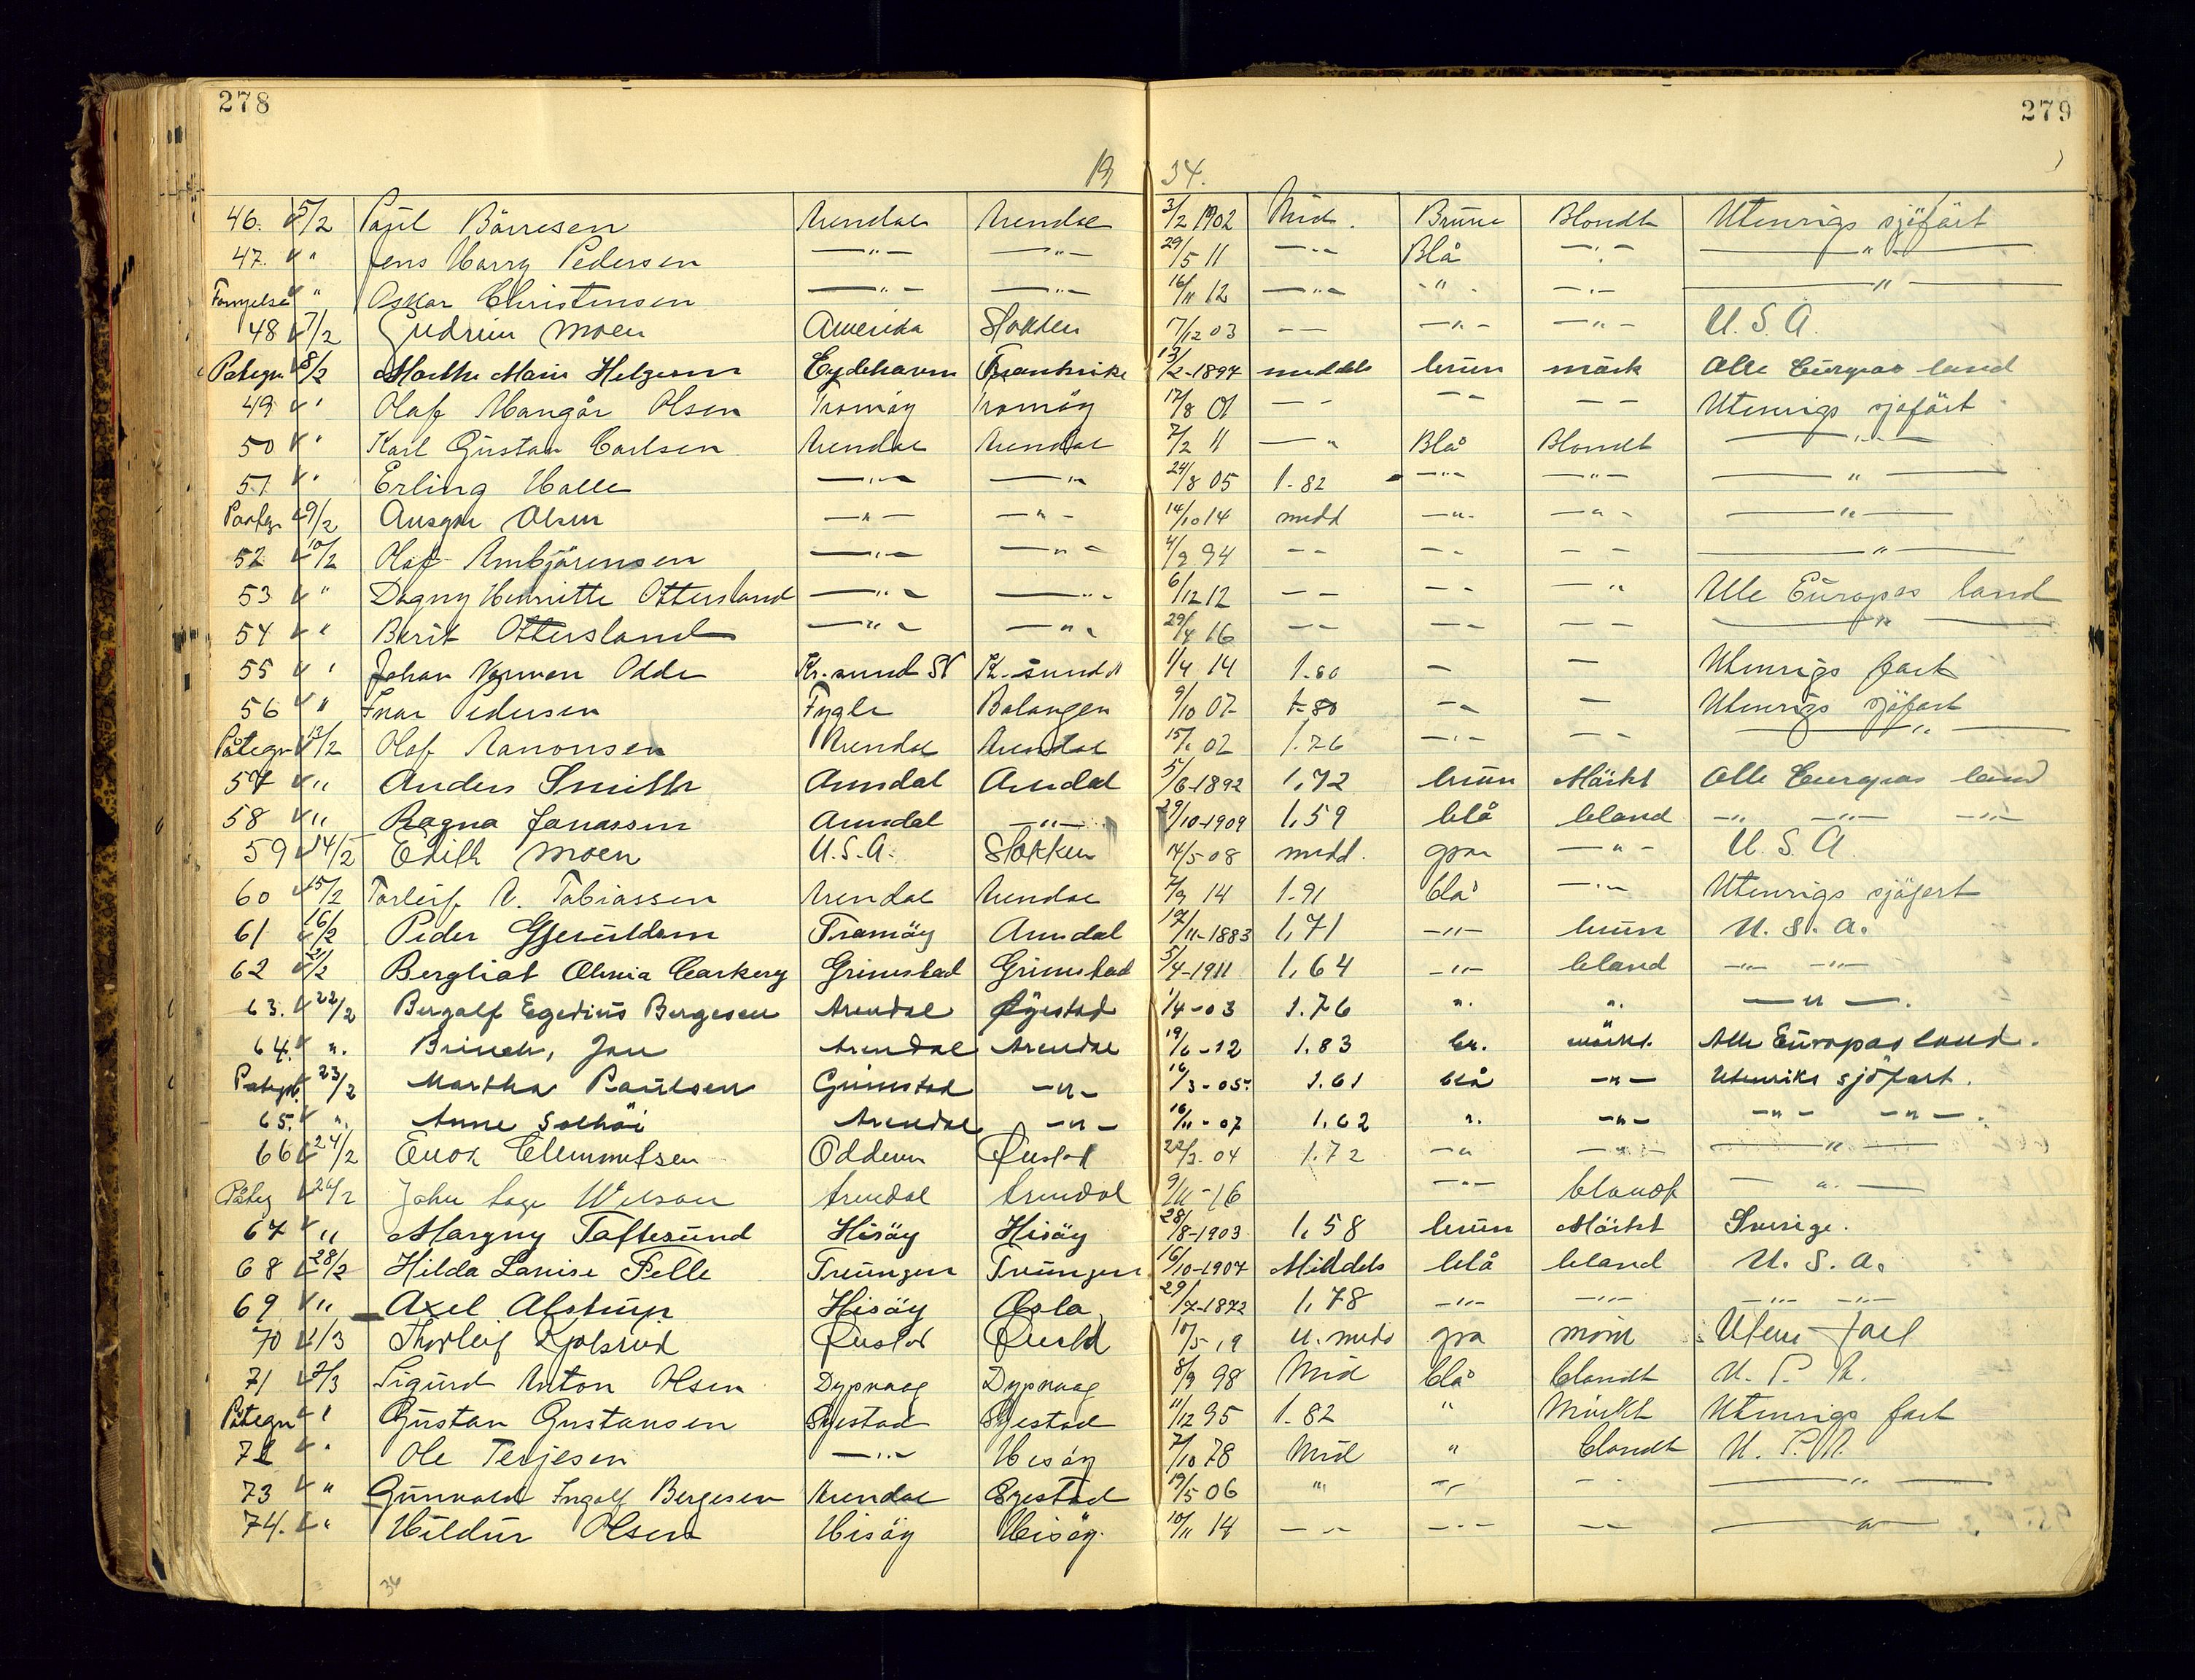 278
279
19 34.
46. 5/2 Paul Börresen Arendal Arendal 3/2 1902 Mid. Brune Blondt Utenrigs sjöfart
47. " Jens Harry Pedersen —"— —"— 29/5 11 —"— Blå —"— —"—
Fornyelse " Oskar Christensen —"— —"— 16/11 12 —"— " —"— —"—
48 7/2 Gudrun Moen Amerika Stokken 17/12 03 — — —"— —"— U.S.A.
Påtegn 8/2 Marthe Marie Helgesen Eydehavn Frankrike 13/2-1897 middels brun mörk Alle Europas land
49 " Olaf Olsen Tromöy Tromöy 17/8 01 — — — — — — Utenrigs sjöfart
50 " Karl Gustav Carlsen Arendal Arendal 7/2 11 — " Blå Blondt —"—
51 " Erling Halle —"— —"— 24/8 05 1.82 —"— —"— —"—
Paateg. 9/2 Ansgar Olsen —"— —"— 14/10 14 midd —"— —"— —"—
52 10/2 Olaf Ambjörensen —"— —"— 4/9 94 — — — — — — —"—
53 " Dagny Henriette Ottersland —"— —"— 6/12 12 — — — — — " Alle Europas land
54 " Berit Ottersland —"— —"— 29/4 16 — — — — — — —"—
55 " Johan Odde Kr.sund N Kr.sund N 1/4 14 1.80 — — Utenrigs fart
56 " Inar Pedersen Fygle Balangen 9/10 07 1-80 — — — Utenrigs sjöfart
Påtegn 13/2 Olaf Aanonsen Arendal Arendal 15/1 02 1.76 —"— — — —"—
57 " Anders Smith Arendal Arendal 5/6-1892 1,72 brun Mörkt Alle Europas land
58 " Ragna Jonassen Arendal —"— 29/10-1909 1,59 blå blond —"— —"— —"—
59 14/2 Edith Moen U.S.A. Stokken 14/5-08 midd. graa —"— U.S.A
60 15/2 Torleif A. Tobiassen Arendal Arendal 7/9 14 1-91 blå —"— Utenrigs sjöfart
61 16/2 Peder Gjeruldsen Tromöy Arendal 17/11-1883 1,71 —"— brun U.S.A.
62 21/2 Bergliot Grimstad Grimstad 5/4-1911 1,64 —"— blond —"— —"—
63. 22/2 Bergulf Egedius Bergesen Arendal Öyestad 1/4-03 1.76 ". ". —"—.
64. ". Brinch, Jan Arendal Arendal 19/6-12 1.83 br. mörkt. Alle Europas land.
Påtegn. 23/2 Martha Paulsen Grimstad —"— 16/3-05 1.61 blå —"— Utenriks sjöfart.
65. ". Anne Solhöi Arendal —"— 16/11-07 1.62 ". —"— —"— —"—.
66 24/2 Enok Clemmetsen 22/3-04 1.72 —" —"— —"—
Påteg 26/2 John Wilson Arendal Arendal 9/11-16 —"— blondt —"—
67 " Margny Taftesund Hisöy Hisöy 28/8-1903 1,58 brun Mörkt Sverige.
68 28/2 Hilda Lovise Felle Treungen Treungen 16/10-1907 Middels blå blond U.S.A.
69 " Axel Alstrup Hisöy Oslo 29/7-1872 1,78 —"— —"— —"— —"—
70 1/3 Thorleif 10/5-19 u. midd gra
71 2/3 Sigurd Anton Olsen Dypvaag Dypvaag 8/9 98 Mid blå blondt
Påtegn " Gustav Gustavsen Öyestad Öyestad 11/12 95 1.82 " Mörkt Utenrigs fart
72 " Ole Terjesen —"— Hisöy 7/10 78 Mid " blondt
73 " Gunvald Ingolf Bergesen Arendal Öyestad 19/5 06 " —"— — —"—
74. " Hildur Olsen Hisöy Hisöy. 10/11 14 — — —"— — — —"—
36